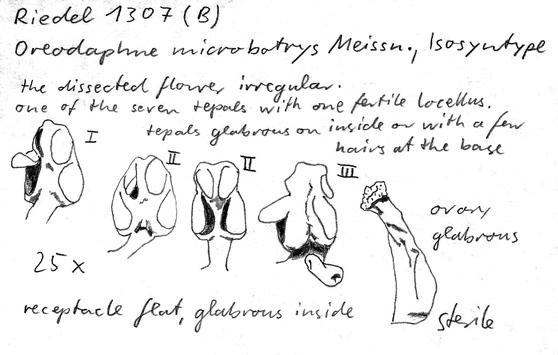 Riedel 1307 (B)
Oreodaphne microbotrys Meissn., Isosyntype
the dissected flower irregular.
one of the seven tepals with one fertile locellus.
tepals glabrous on inside or with a few
hairs at the base
I
II
II
III
ovary
glabrous
25 x
receptacle flat, glabrous inside
sterile